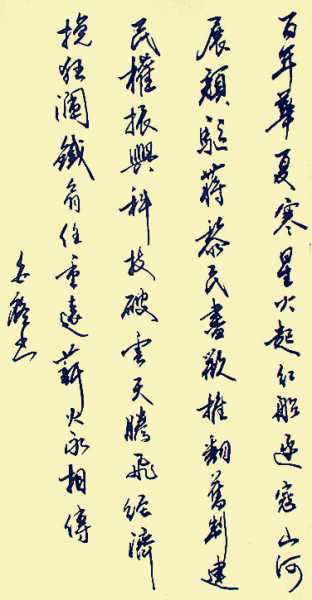 百年華夏寒星火起红船逐寇山河
展顏驅蔣黎民盡歡推翻舊制建
民權振興科技破雲天騰飛经濟
挽狂瀾鐵肩任重遠薪火永相傳